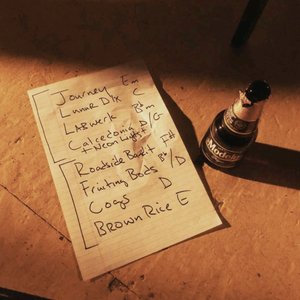 Journey Em
Lunar Dix C
LABwerk Bbm
Calcedonia D/G
+ Neon Lights
Roadside Bandit F#
Fruiting Bods Bb/D
Cogs D
BROWN RICE E
Modelo